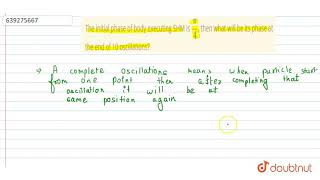 639275667
The initial phase of body executing SHM is π/4, then what will be its phase at
the end of 10 oscillations?
⇒ A complete oscillations means when particle start
from one point then after completing that
oscillation it will be at
same position again
doubtnut